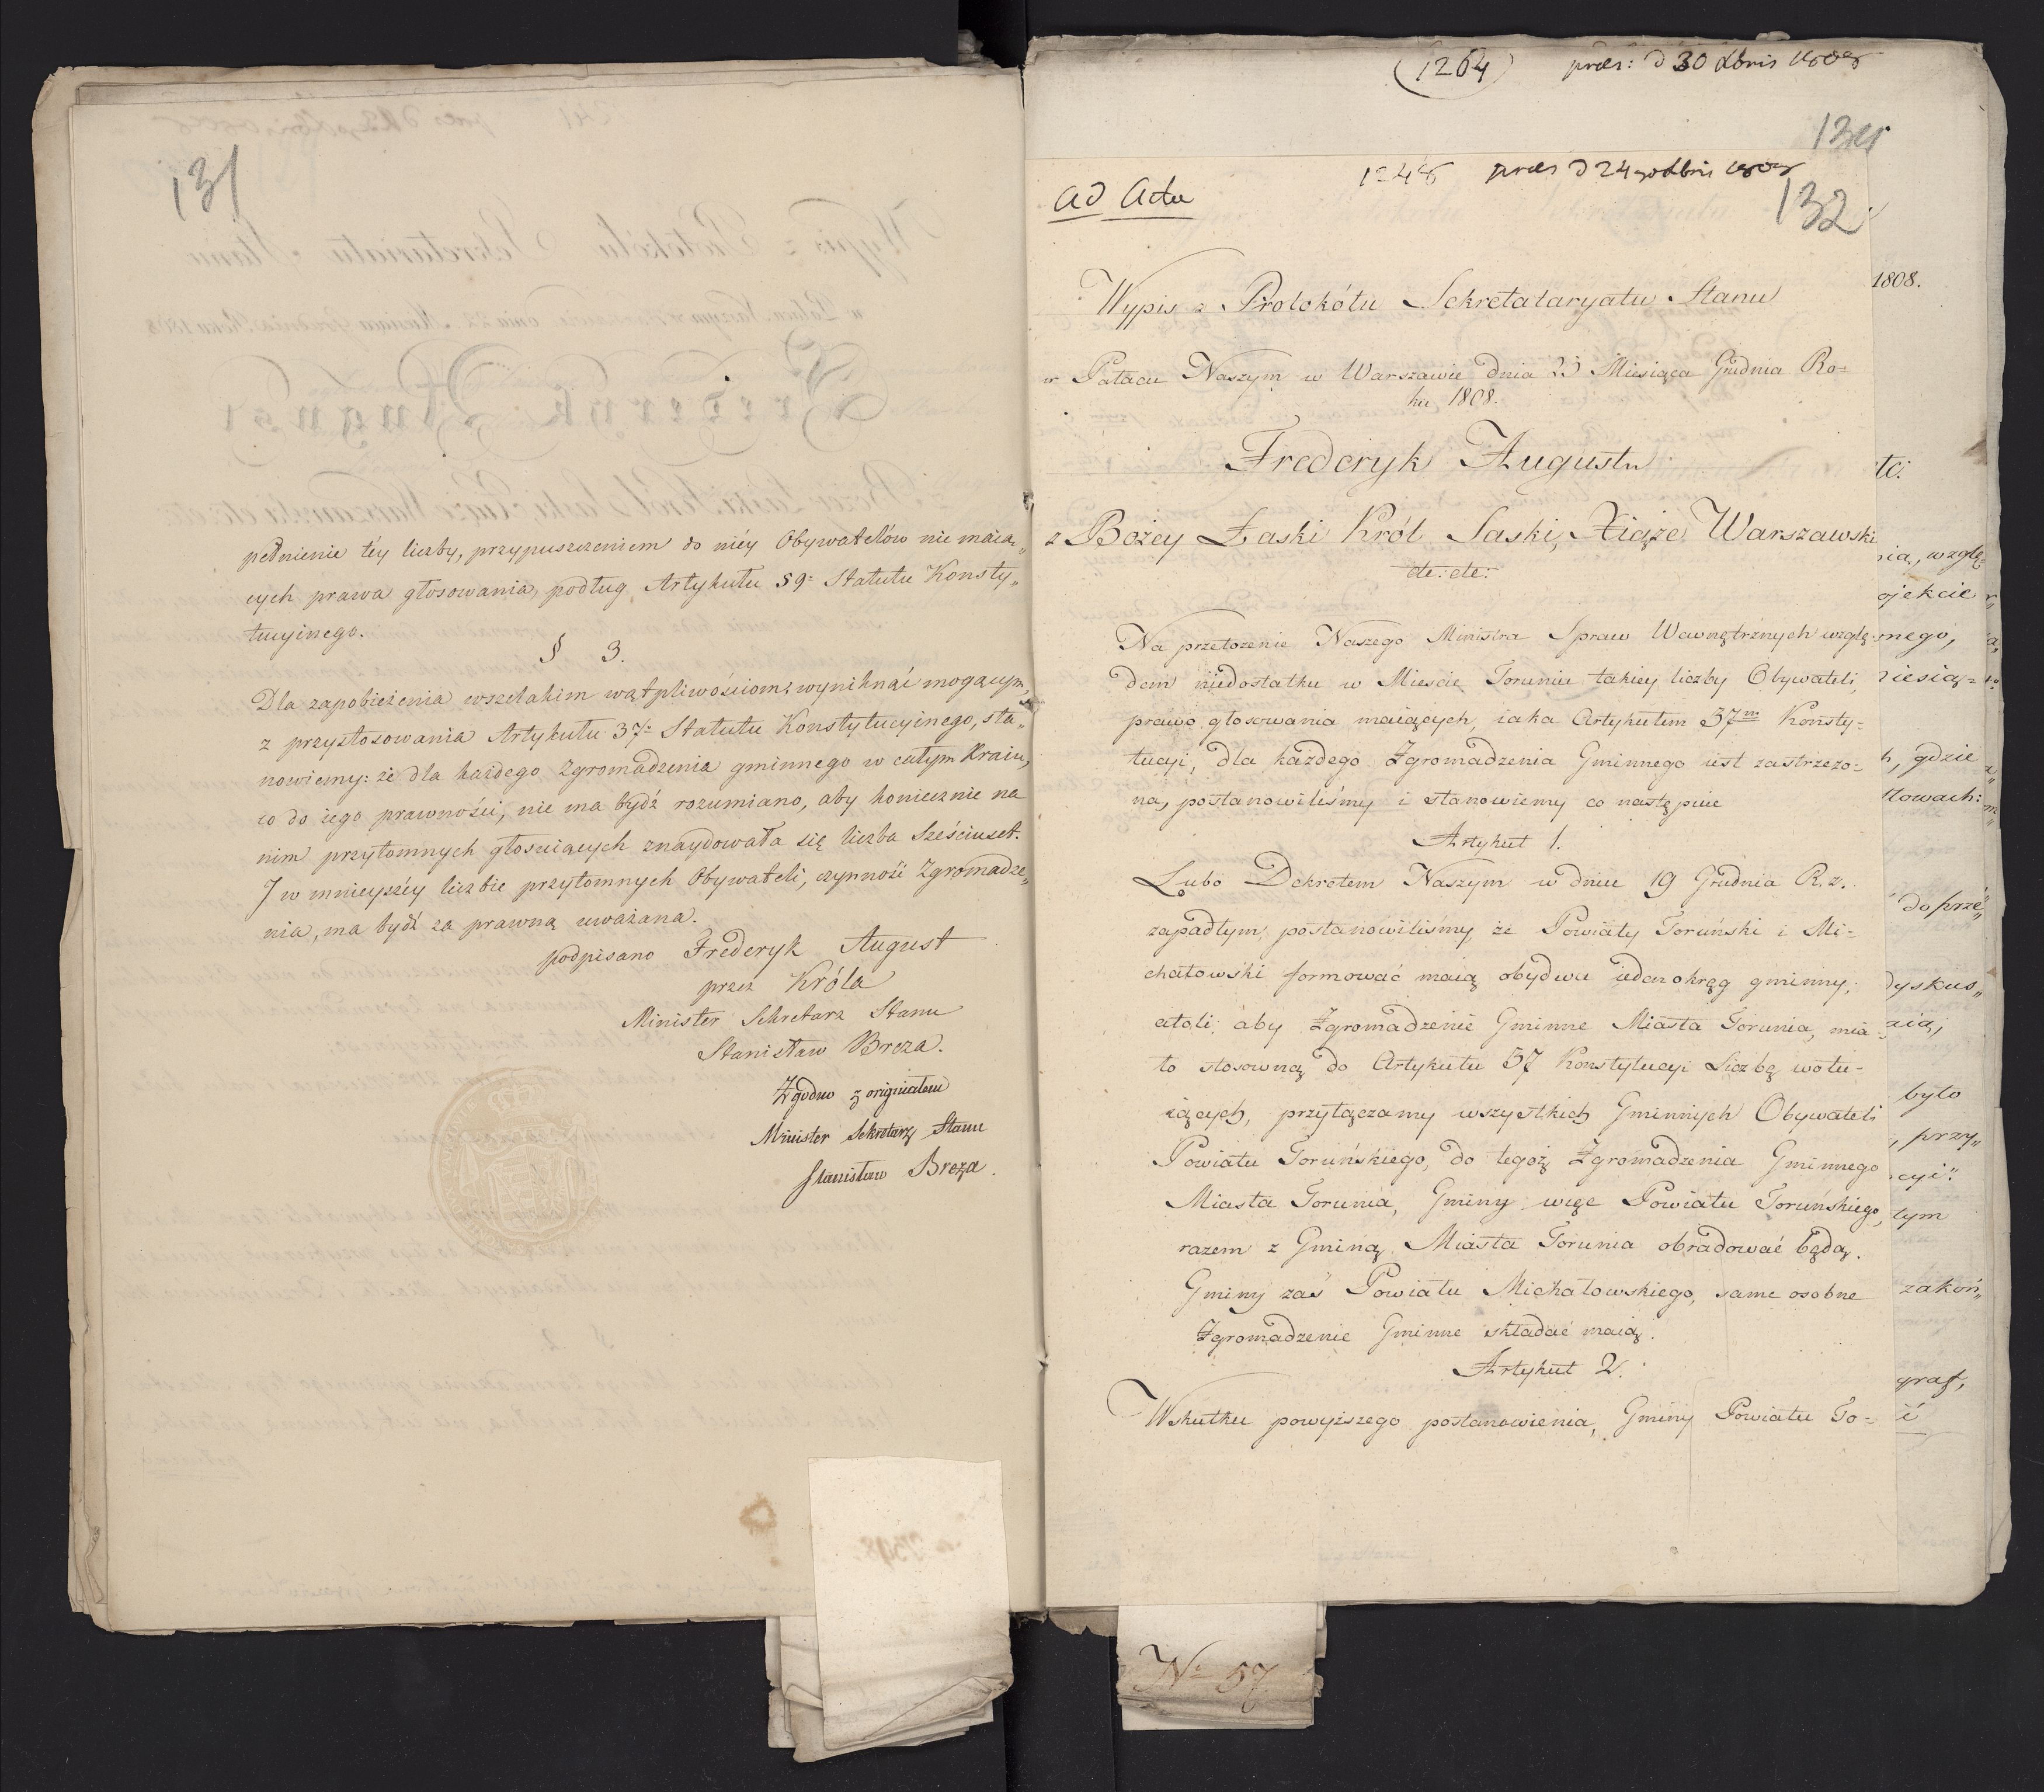 131
pełnienie téy liczby, przypuszczeniem do niéy Obywatelów nie maią„
cych prawa głosowania, podług Artykułu 59º Statutu Konsty„
tucyinego.
§ 3.
Dla zapobieżenia wszelakim wątpliwościom, wyniknąć mogącym,
z przystosowania Artykułu 37º Statutu Konstytucyinego, sta„
nowiemy: że dla każdego Zgromadzenia gminnego w całym Kraiu,
co do iego prawności, nie ma bydź rozumiano, aby koniecznie na
nim przytomnych głosuiących znaydowała się liczba Sześciuset.
I w mnieyszéy liczbie przytomnych Obywateli, czynność Zgromadze„
nia, ma bydź za prawną uważana.
podpisano Frederyk August
przez Króla
Minister Sekretarz Stanu
Stanisław Breza.
Zgodno z originałem
Minister Sekretarz Stanu
Stanisław Breza.
(1264) præs: d 30 Xbris 1808
134
1248 præs d 24 Xbris 1808
ad Acta
132
Wypis z Protokółu Sekretataryatu Stanu
w Pałacu Naszym w Warszawie dnia 23 Miesiąca Grudnia Ro=
ku 1808.
Frederyk August
z Bożey Łaski Król Saski, Xiąże Warszawski
etc: etc:
Na przełożenie Naszego Ministra Spraw Wewnętrznych wzglę-
dem niedostatku w Mieście Toruniu takiey liczby Obywateli,
prawo głosowania maiących, iaka Artykułem 57m Konsty-
tucyi, dla każdego Zgromadzenia Gminnego iest zastrzeżo-
na, postanowiliśmy i stanowiemy co następuie
Artykuł 1.
Lubo Dekretem Naszym w dniu 19 Grudnia R. z.
zapadłym, postanowiliśmy, że Powiaty Toruński i Mi-
chałowski formować maią obydwa ieden okrąg gminny,
atoli, aby Zgromadzenie Gminne Miasta Torunia, mia-
ło stosowną do Artykułu 57 Konstytucyi Liczbę wotu-
iących, przyłączamy wszystkich Gminnych Obywateli
Powiatu Toruńskiego, do tegoż Zgromadzenia Gminnego
Miasta Torunia, Gminy więc Powiatu Toruńskiego,
razem z Gminą Miasta Torunia obradować będą.
Gminy zaś Powiatu Michałowskiego, same osobne
Zgromadzenie Gminne składać maią.
Artykuł 2.
Wskutku powyższego postanowienia, Gminy Powiatu To-
1808.
etc:
nia, wzglę-
ojekcie
mnego,
iesią=
h, gdzie
łowach:
do prze„
dyskus„
nia,
było
, przy„
cyi"
tym
zakoń„
graf,
Nº 57